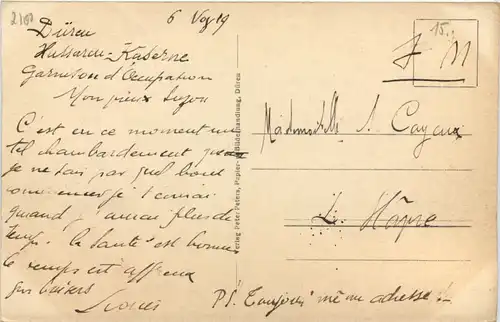 6 Nov 19
Düren
Hussaren-Kaserne
Garnison d'Occupation
Mon vieux
C'est en ce moment un
tel chambardement que
je ne sais par quel bout
commencer je t'écrirai
quand j'aurai plus de
temps. La santé est bonne
le temps est affreux
Gros baisers
Verlag Peter Peters, Papier- u. Bilderhandlung, Düren
15.
F M
Mademoiselle S. Cayeux
Le Hâvre
PS. Toujours même adresse !